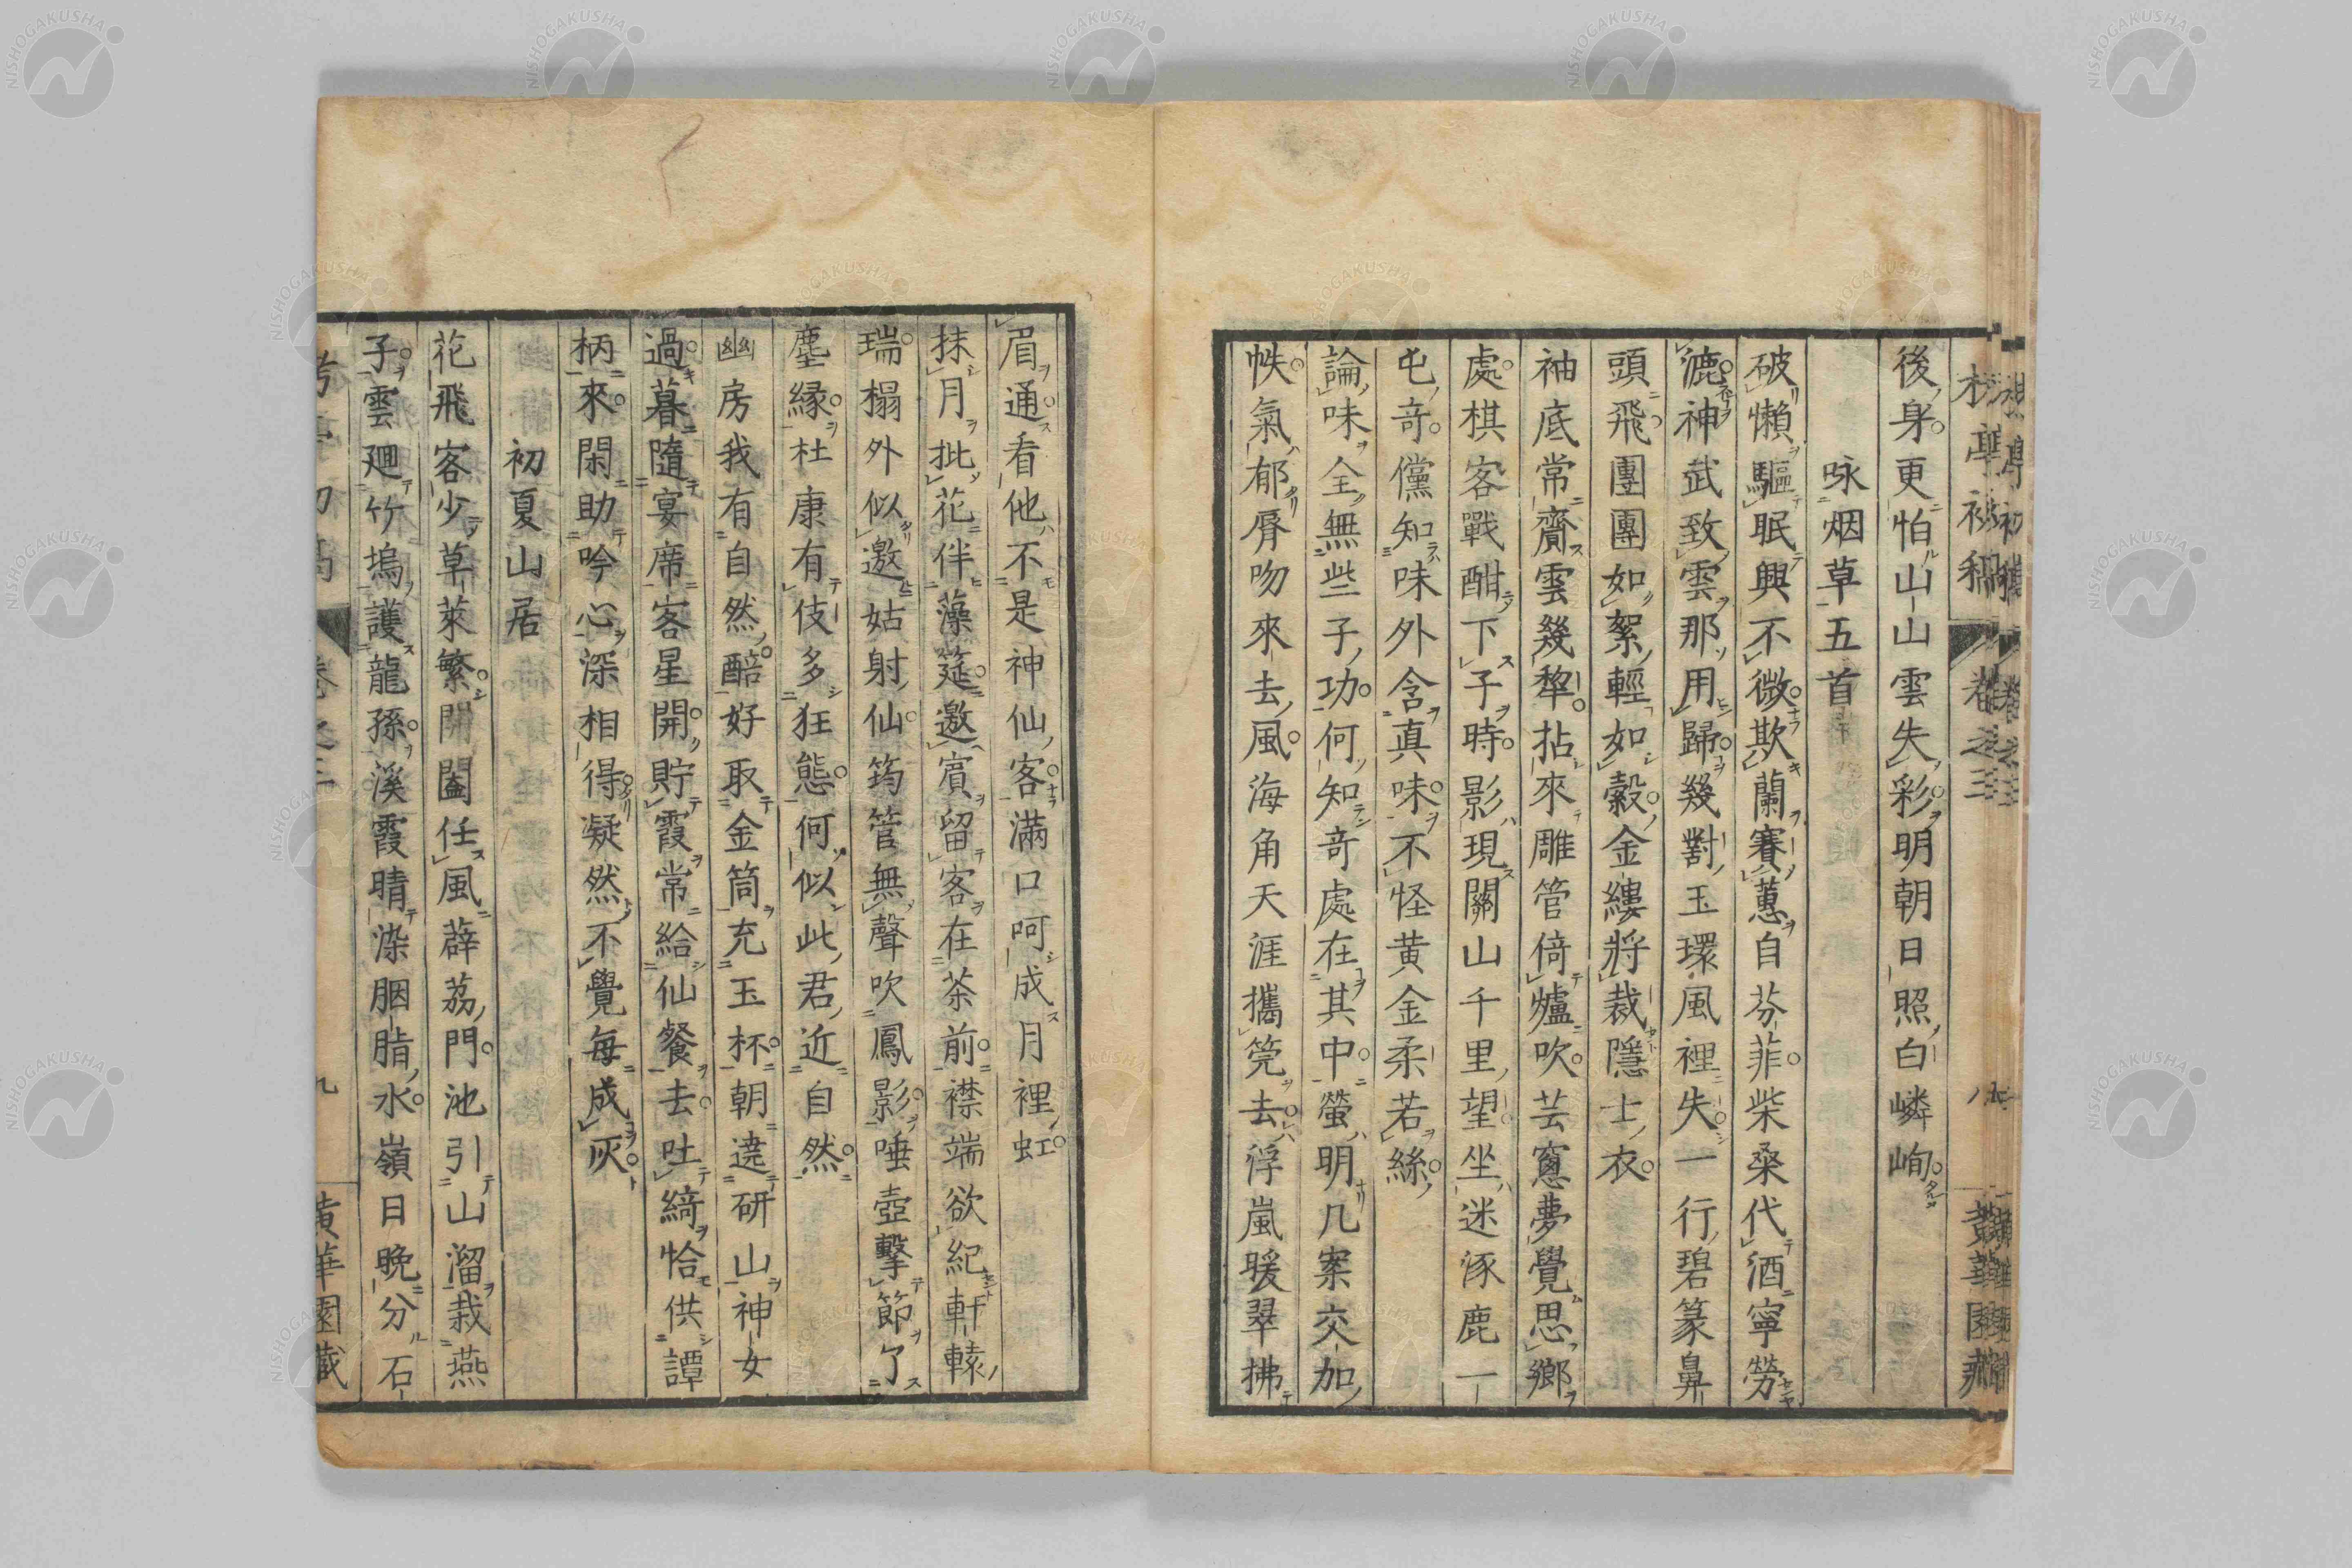 後身更怕山山雲失彩明朝日照白嶙峋
咏烟草五首
破懶驅眠興不微欺蘭賽蕙自芬菲柴桑代酒寧勞
漉神武致雲那用歸幾對玉環風裡失一行碧篆鼻
頭飛團團如絮輕如縠金縷將裁隱士衣
袖底常齎雲幾犂拈來雕管倚爐吹芸窓夢覺思鄉
處棋客戰酣下子時影現關山千里望坐迷涿鹿一
屯奇儻知味外含真味不怪黄金柔若絲
論味全無些子功何知奇處在其中螢明几案交加
帙氣郁脣吻來去風海角天涯攜筦去浮嵐暖翠拂
眉通看他不是神仙客滿口呵成月裡虹
抹月批花伴藻筵邀賓留客在茶前襟端欲紀軒轅
瑞榻外似邀姑射仙筠管無聲吹鳳影唾壺擊節了
塵縁杜康有伎多狂態何似此君近自然
幽房我有自然醅好取金筒充玉杯朝遶研山神女
過暮隨宴席客星開貯霞常給仙餐去吐綺恰供譚
柄來閑助吟心深相得凝然不覺毎成灰
初夏山居
花飛客少草萊繁開闔任風薜荔門池引山溜栽燕
子雲廻竹塢護龍孫溪霞晴染胭脂水嶺日晩分石
卷之三
九
黄華園藏